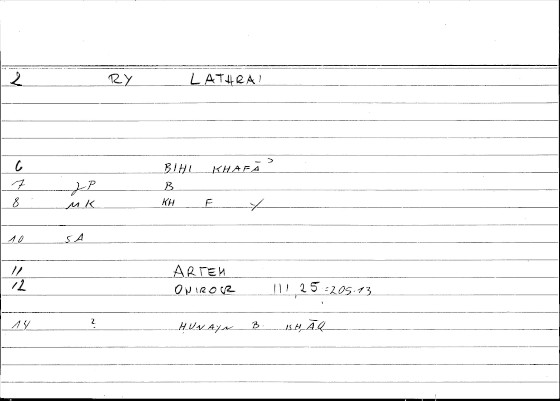 2 RY LATHRAI
6 BIHI KHAFĀʾ
7 JP B
8 MK KH F
10 SA
11 ARTEM
12 ONIROCR III, 25 = 205.13
14 ? HUNAYN B ISḤĀQ